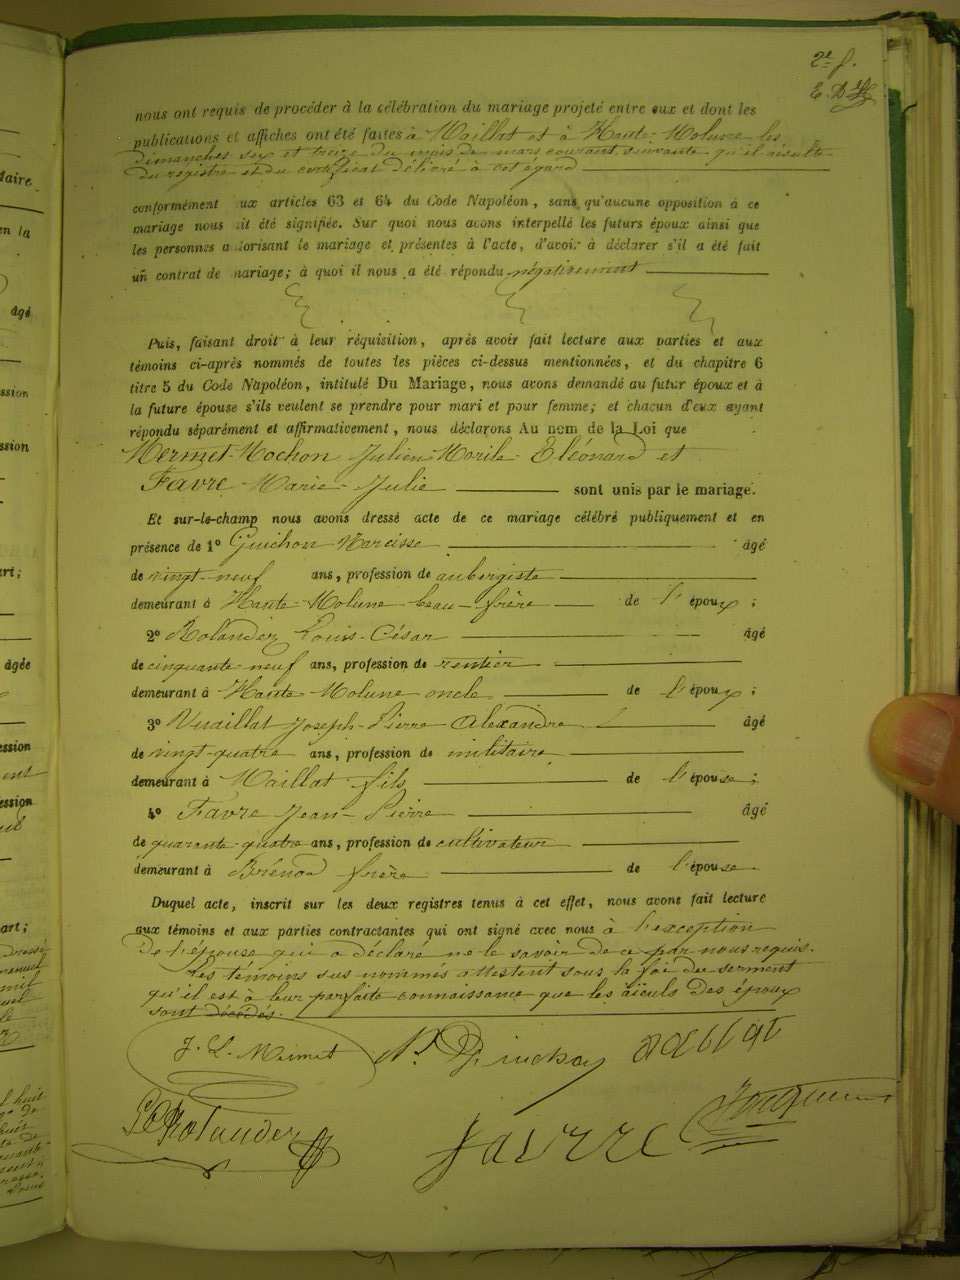 2e f.
nous ont requis de procéder à la célébration du mariage projeté entre eux et dont les
publications et affiches ont été faites à Maillat et à Haute-Molune les
dimanches six et treize du mois de mars courant suivante qu'il résulte
du registre et du certificat délivré à cet égard
conformément aux articles 63 et 64 du Code Napoléon, sans qu'aucune opposition à ce
mariage nous ait été signifiée. Sur quoi nous avons interpellé les futurs époux ainsi que
les personnes autorisant le mariage et présentes à l'acte, d'avoir à déclarer s'il a été fait
un contrat de mariage; à quoi il nous a été répondu négativement
Puis, faisant droit à leur réquisition, après avoir fait lecture aux parties et aux
témoins ci-après nommés de toutes les pièces ci-dessus mentionnées, et du chapitre 6
titre 5 du Code Napoléon, intitulé Du Mariage, nous avons demandé au futur époux et à
la future épouse s'ils veulent se prendre pour mari et pour femme; et chacun d'eux ayant
répondu séparément et affirmativement, nous déclarons Au nom de la Loi que
Mermet-Mochon Julien Morile Eléonard et
Favre Marie-Julie sont unis par le mariage.
Et sur-le-champ nous avons dressé acte de ce mariage célébré publiquement et en
présence de 1° Guichon Narcisse âgé
de vingt-neuf ans, profession de aubergiste
demeurant à Haute-Molune beau-frère de l'époux;
2° Rolandez Louis-César âgé
de cinquante neuf ans, profession de rentier
demeurant à Haute-Molune oncle de l'époux;
3° Vuaillat Joseph-Pierre Alexandre âgé
de vingt-quatre ans, profession de militaire
demeurant à Maillat fils de l'épouse;
4° Favre Jean-Pierre âgé
de quarante quatre ans, profession de cultivateur
demeurant à Brénod frère de l'épouse
Duquel acte, inscrit sur les deux registres tenus à cet effet, nous avons fait lecture
aux témoins et aux parties contractantes qui ont signé avec nous à l'exception
de l'épouse qui a déclaré ne le savoir de ce par nous requis.
Les témoins sus nommés attestent sous la foi du serment
qu'il est à leur parfaite connaissance que les aïeuls des époux
sont décédés.
J. L. Mermet
Rolandez
Favre